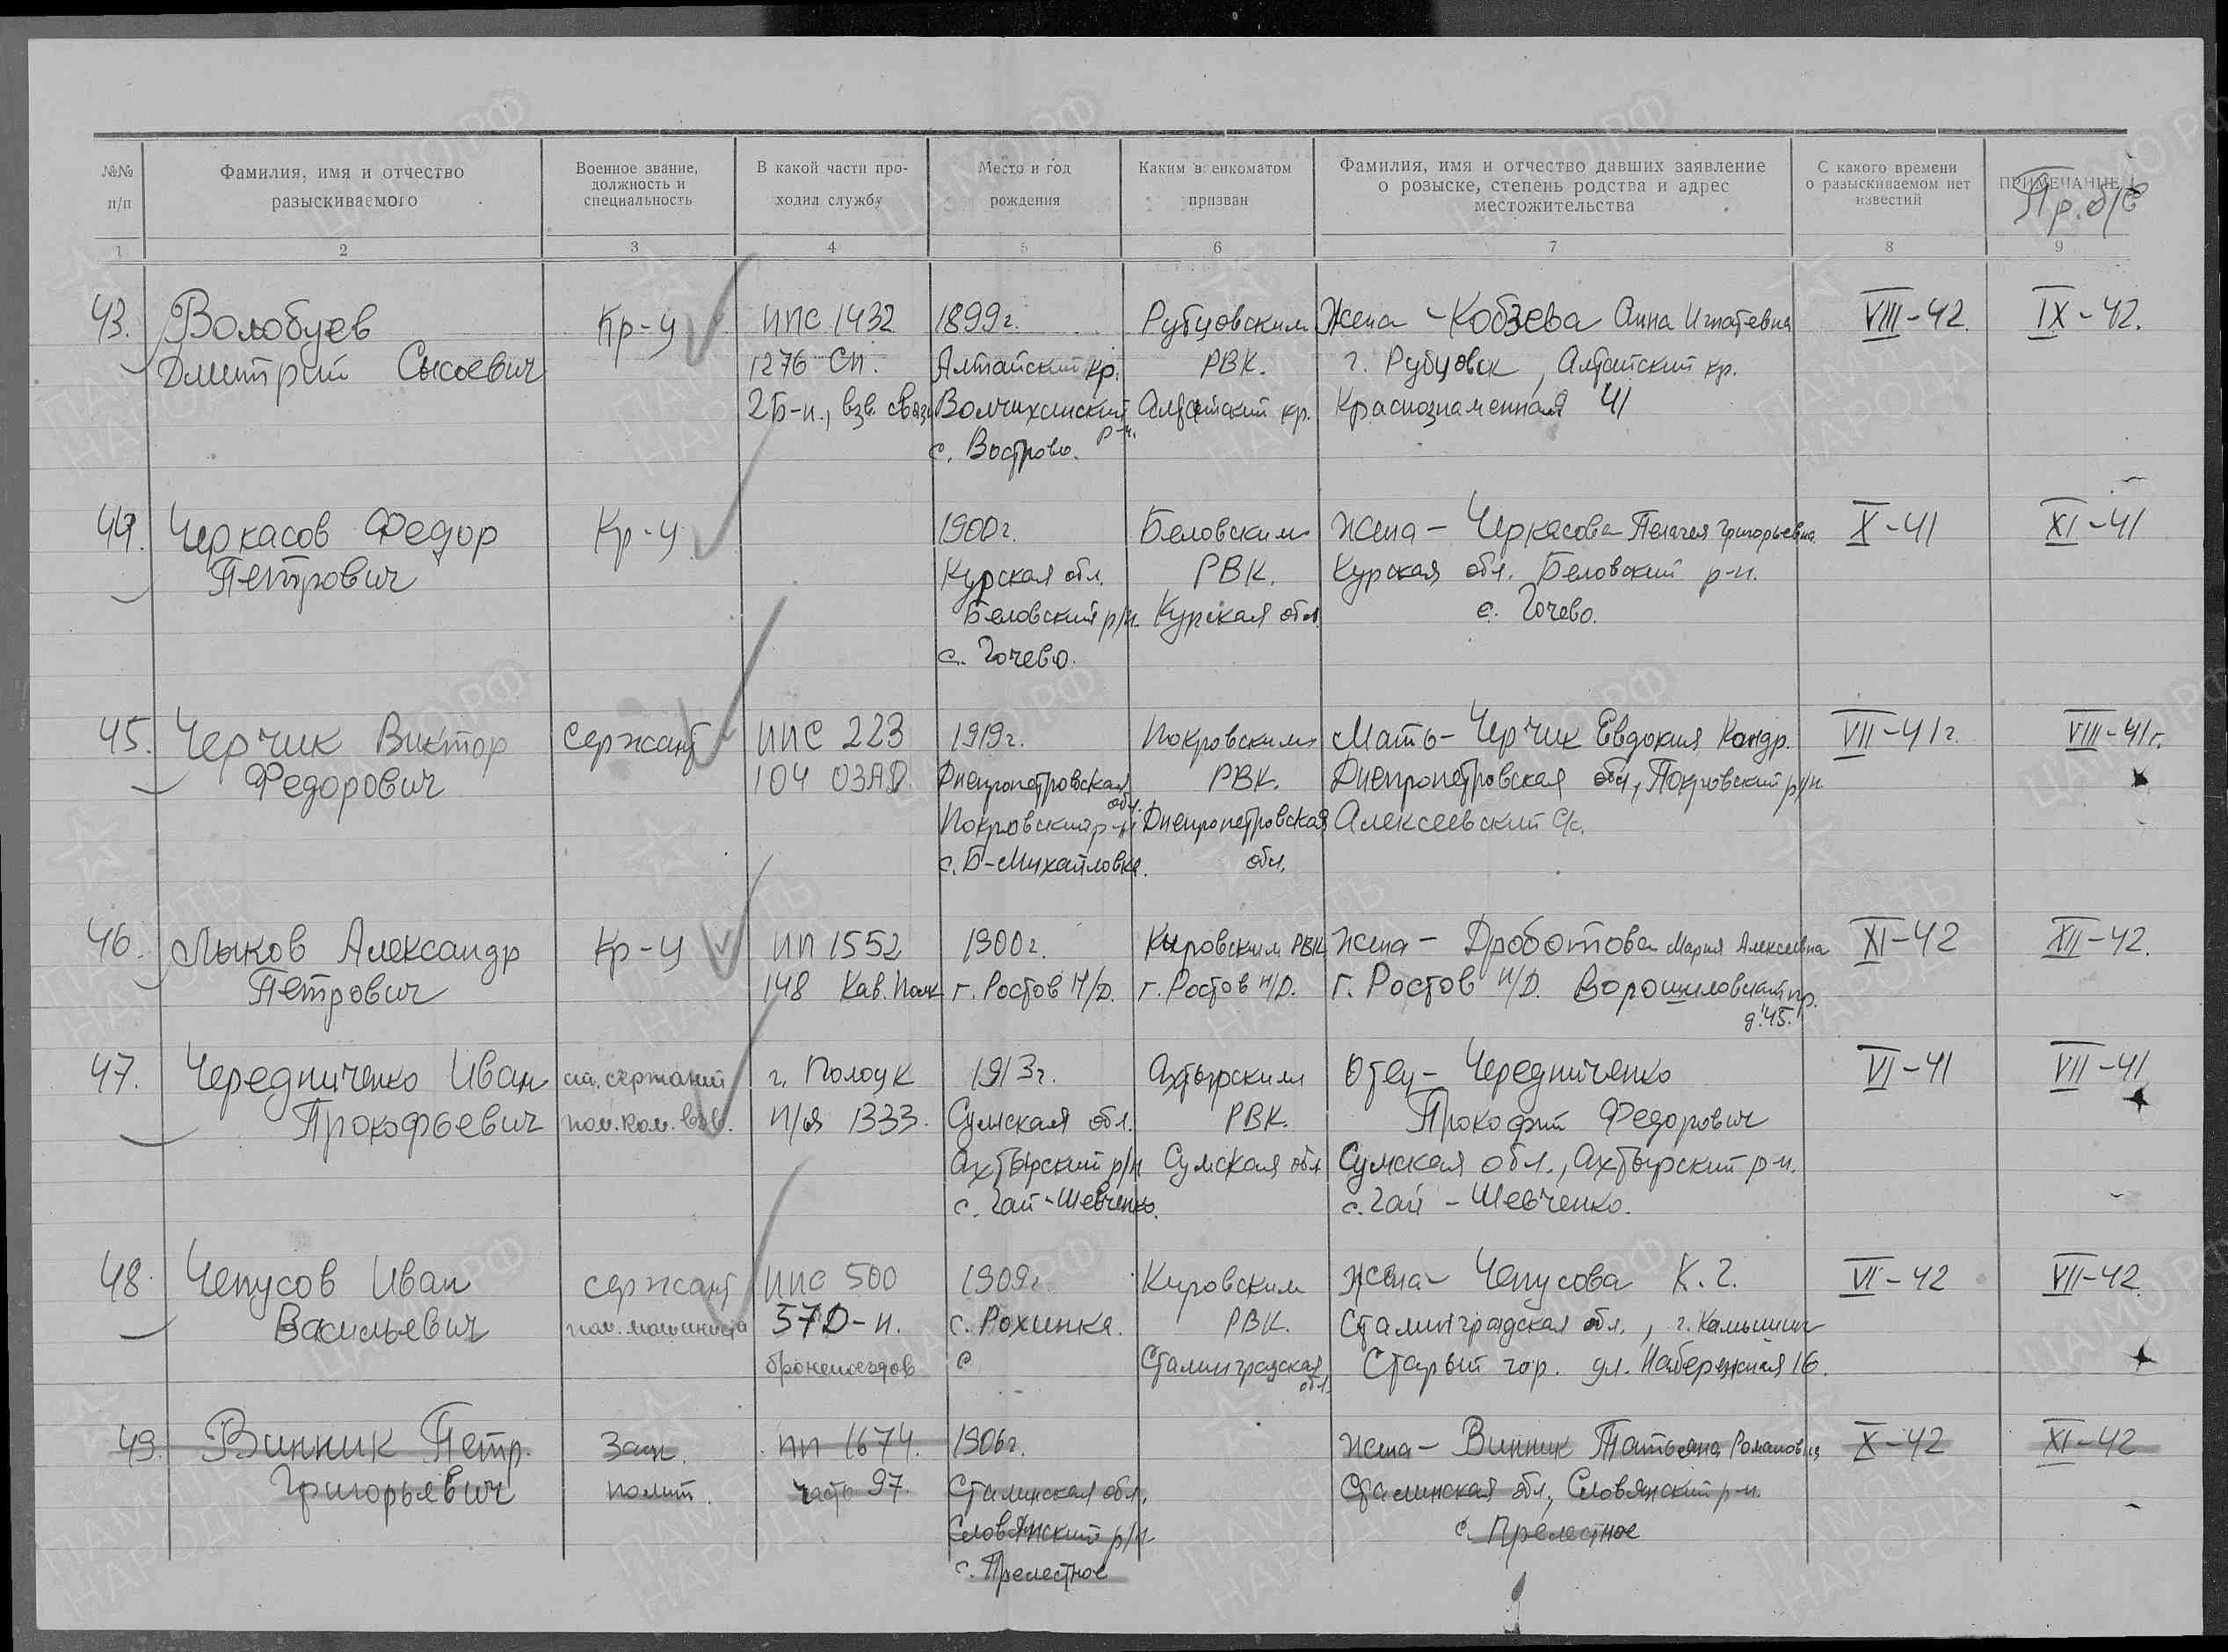 №№ п/п
Фамилия, имя и отчество разыскиваемого
Военное звание, должность и специальность
В какой части проходил службу
Место и год рождения
Каким военкоматом призван
Фамилия, имя и отчество давших заявление о розыске, степень родства и адрес местожительства
С какого времени о разыскиваемом нет известий
ПРИМЕЧАНИЕ
Пр. б/в
1 2 3 4 5 6 7 8 9
43. Волобуев Кр-ц ППС 1432 1899г. Рубцовским Жена - Кобзева Анна Игнатевна VIII-42. IX-42.
Дмитрий Сысоевич 1276 СП. Алтайский кр. РВК. г. Рубцовск, Алтайский кр.
2 Б-н., взв. связи Волчихинский р-н. Алтайский кр. Краснознаменная 41
с. Вострово.
44. Черкасов Федор Кр-ц 1900г. Беловским Жена - Черкасова Пелагея Григорьевна X-41 XI-41
Петрович Курская обл. РВК. Курская обл. Беловский р-н.
Беловский р/н. Курская обл. с. Гочево.
с. Гочево.
45. Черчик Виктор Сержант ППС 223 1919г. Покровским Мать - Черчик Евдокия Кондр. VII-41г. VIII-41г.
Федорович 104 ОЗАД Днепропетровская обл. РВК. Днепропетровская обл, Покровский р/н.
Покровский р-н Днепропетровская Алексеевский с/с.
с. Б-Михайловка. обл.
46. Лыков Александр Кр-ц ПП 1552 1900г. Кировским РВК Жена - Дроботова Мария Алексеевна XI-42 XII-42.
Петрович 148 Кав. Полк г. Ростов Н/Д. г. Ростов Н/Д. г. Ростов Н/Д. Ворошиловский пр.
д. 45.
47. Чередниченко Иван мл. сержант г. Полоцк 1913г. Ахтырским Отец - Чередниченко VI-41 VII-41
Прокофьевич пом. ком. взв. п/я 1333. Сумская обл. РВК. Прокофий Федорович
Ахтырский р/н Сумская обл Сумская обл., Ахтырский р-н.
с. Гай-Шевченко. с. Гай - Шевченко.
48. Чепусов Иван сержант ППС 500 1909г. Кировским Жена - Чепусова К. Г. VI-42 VII-42.
Васильевич пом. машиниста 57 Д-н. с. Рохинка. РВК. Сталинградская обл., г. Камышин
бронепоездов с Сталинградская обл. Старый гор. ул. Набережная 16.
49. Винник Петр. Зам. ПП 1674. 1906г. Жена - Винник Татьяна Романовна X-42 XI-42
Григорьевич полит. часть 97. Сталинская обл. Сталинская обл, Словянский р-н.
Словянский р/н с. Прелестное
с. Прелестное
ПАМЯТЬ НАРОДА
ЦАМО.РФ